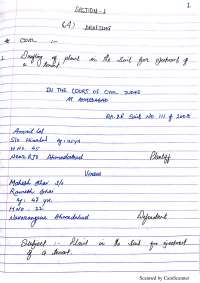 1
SECTION - 1
(A) DRAFTING
* CIVIL :-
1. Drafting of plaint in the Suit for ejectment of
a tenant.
IN THE COURT OF CIVIL JUDGE
AT AHMEDABAD
Suit No. 111 of
Amrut lal
S/o
H.No. 45
Near RTO Ahmedabad Plaintiff
Versus
Mahesh bhai S/o
Ramesh bhai
H.No. - 22
Naranpura Ahmedabad Defendant
Subject :- Plaint in the Suit for ejectment
of a tenant.
Scanned by CamScanner